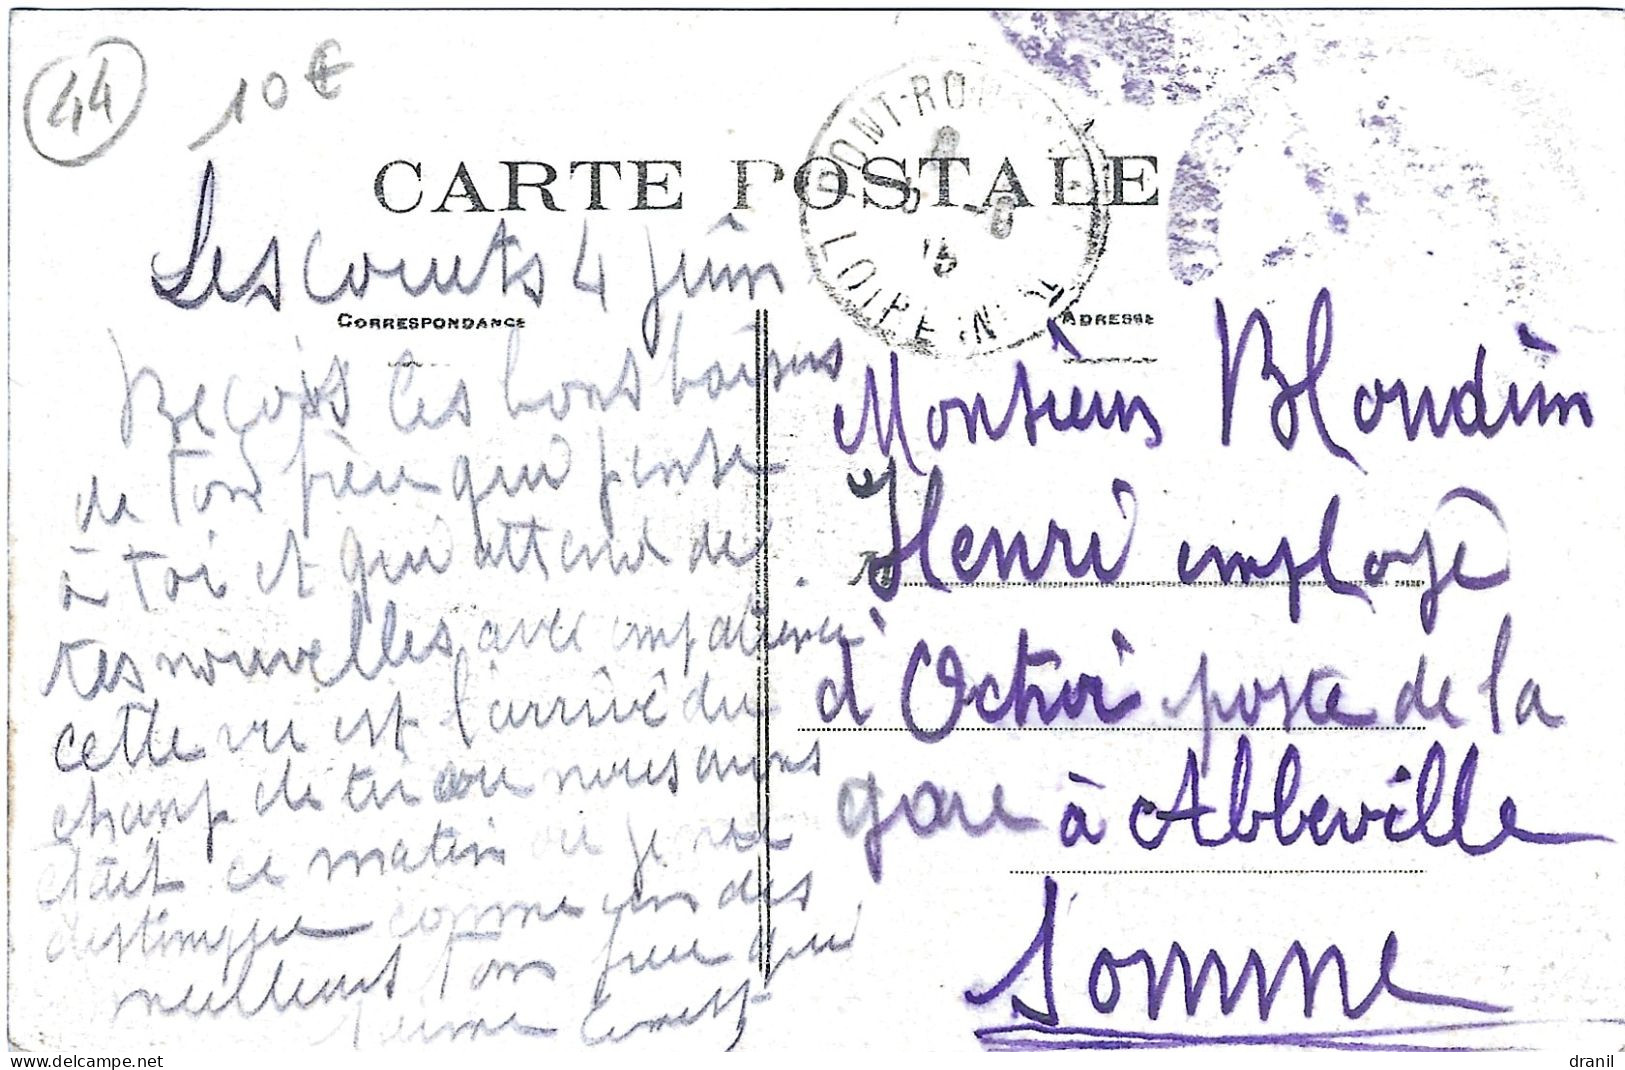 44
10€
CARTE POSTALE
PONT-RO
LOIRE
Les Couets 4 juin
CORRESPONDANCE
ADRESSE
Reçois les bons baisers
de ton frère qui pense
à toi et qui attend de
tes nouvelles avec impatience
cette vue est l'arrivé du
champ de tir ou nous avons
était ce matin ou je me
distingue comme un des
meilleurs Ton frère qui
t'aime Ernest
Monsieur Blondin
Henri employé
d'Octroi poste de la
gare à Abbeville
Somme
www.delcampe.net
dranil